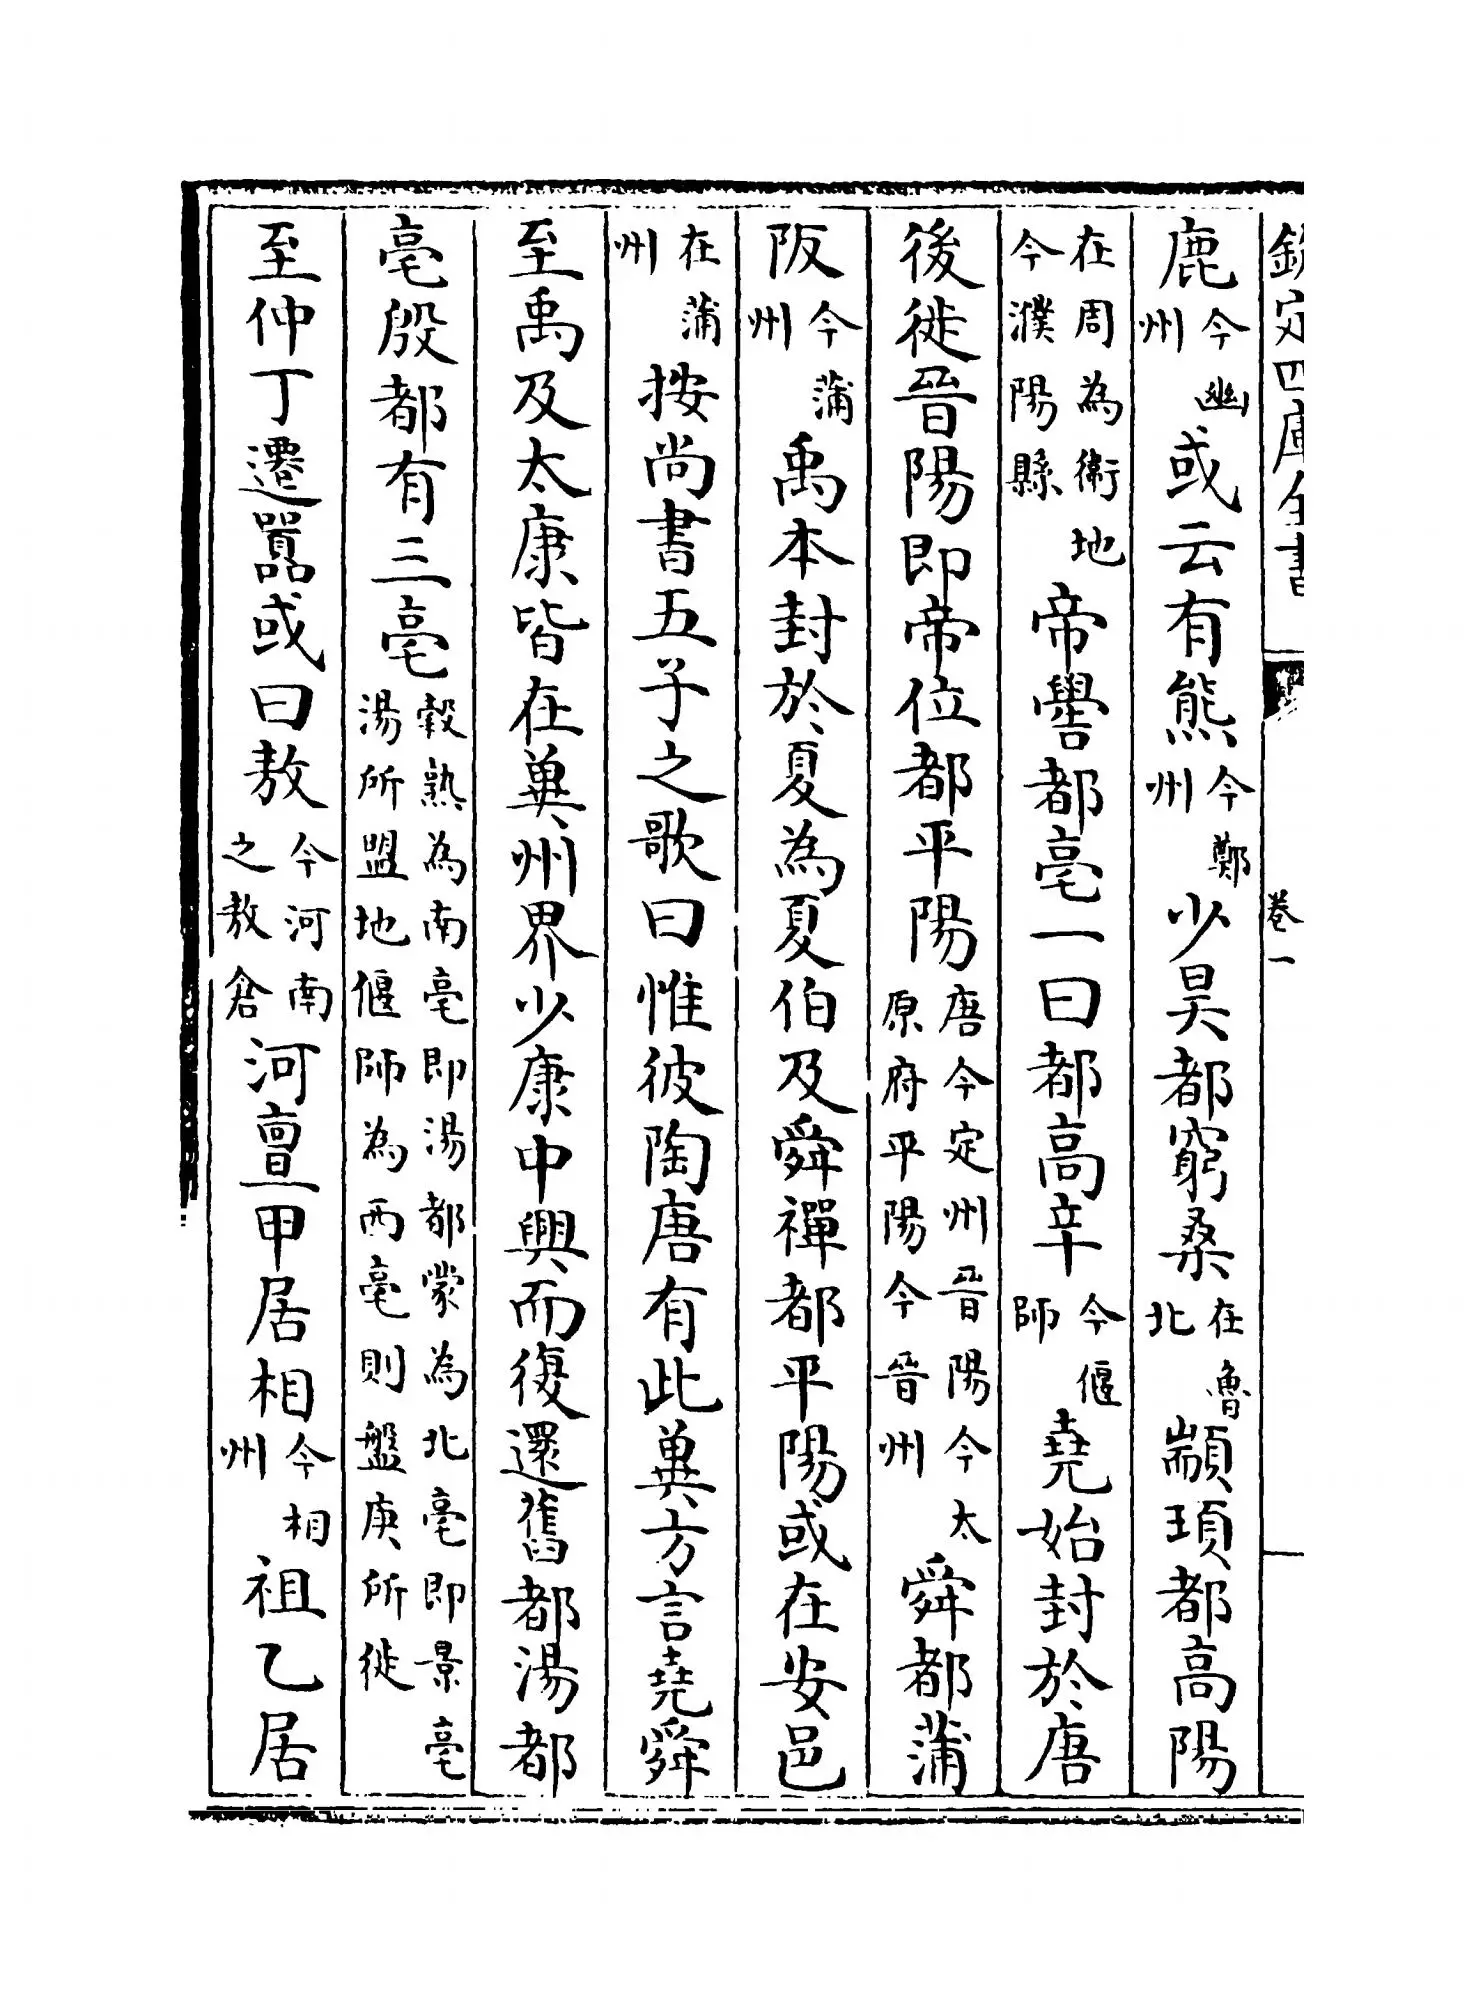 欽定四庫全書 卷一
鹿今幽州或云有熊今鄭州少昊都窮桑在魯北顓頊都高陽
在周為衛地今濮陽縣帝嚳都亳一曰都高辛今偃師堯始封於唐
後徙晉陽即帝位都平陽唐今定州晉陽今太原府平陽今晉州舜都蒲
阪今蒲州禹本封於夏為夏伯及舜禪都平陽或在安邑
在蒲州按尚書五子之歌曰惟彼陶唐有此兾方言堯舜
至禹及太康皆在兾州界少康中興而復還舊都湯都
亳殷都有三亳穀熟為南亳即湯都蒙為北亳即景亳湯所盟地偃師為西亳則盤庚所徙
至仲丁遷囂或曰敖今河南之敖倉河亶甲居相今相州祖乙居